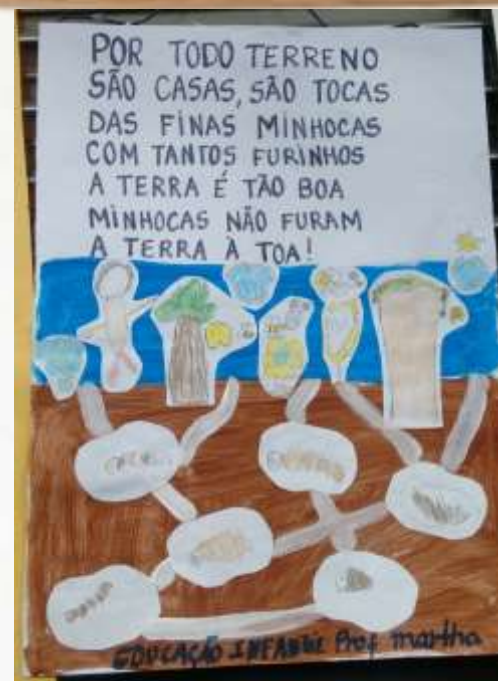 POR TODO TERRENO
SÃO CASAS, SÃO TOCAS
DAS FINAS MINHOCAS
COM TANTOS FURINHOS
A TERRA É TÃO BOA
MINHOCAS NÃO FURAM
A TERRA À TOA!
EDUCAÇÃO INFANTIL Prof Martha